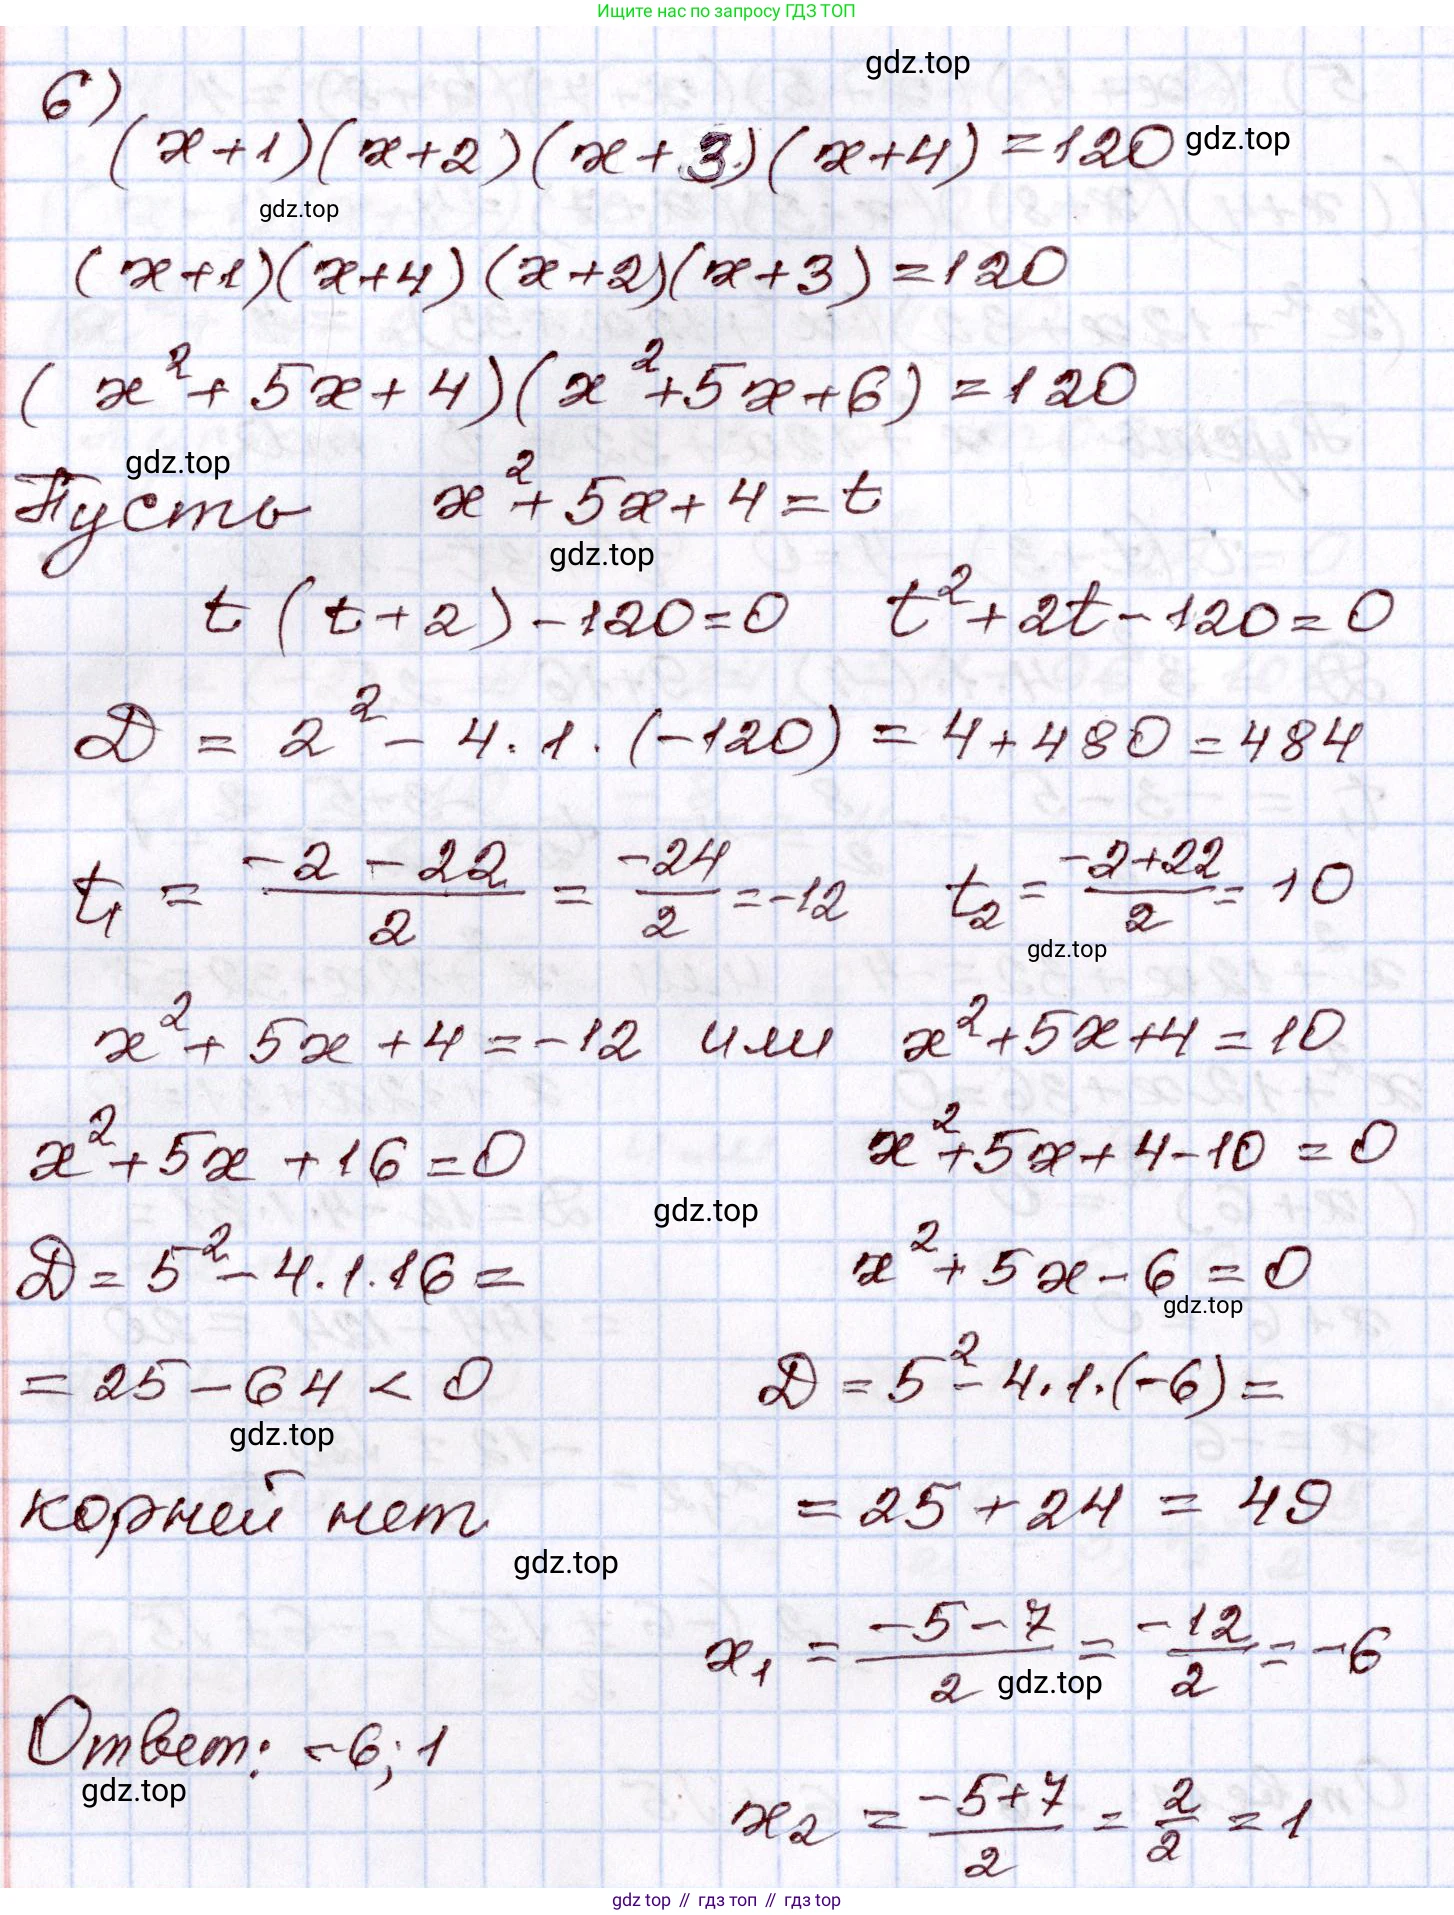 Ищите нас по запросу ГДЗ ТОП
gdz.top
6)
(x+1)(x+2)(x+3)(x+4)=120 gdz.top
gdz.top
(x+1)(x+4)(x+2)(x+3)=120
(x²+5x+4)(x²+5x+6)=120
gdz.top
Пусть x²+5x+4=t
gdz.top
t(t+2)-120=0 t²+2t-120=0
D = 2² - 4·1·(-120) = 4+480=484
t₁ = (-2-22)/2 = -24/2 = -12 t₂ = (-2+22)/2 = 10
gdz.top
x²+5x+4=-12 или x²+5x+4=10
x²+5x+16=0 x²+5x+4-10=0
gdz.top
D=5²-4·1·16= x²+5x-6=0
gdz.top
=25-64<0 D=5²-4·1·(-6)=
gdz.top
корней нет =25+24=49
gdz.top
x₁ = (-5-7)/2 = -12/2 = -6
gdz.top
Ответ: -6; 1
gdz.top
x₂ = (-5+7)/2 = 2/2 = 1
gdz top // гдз топ // гдз top